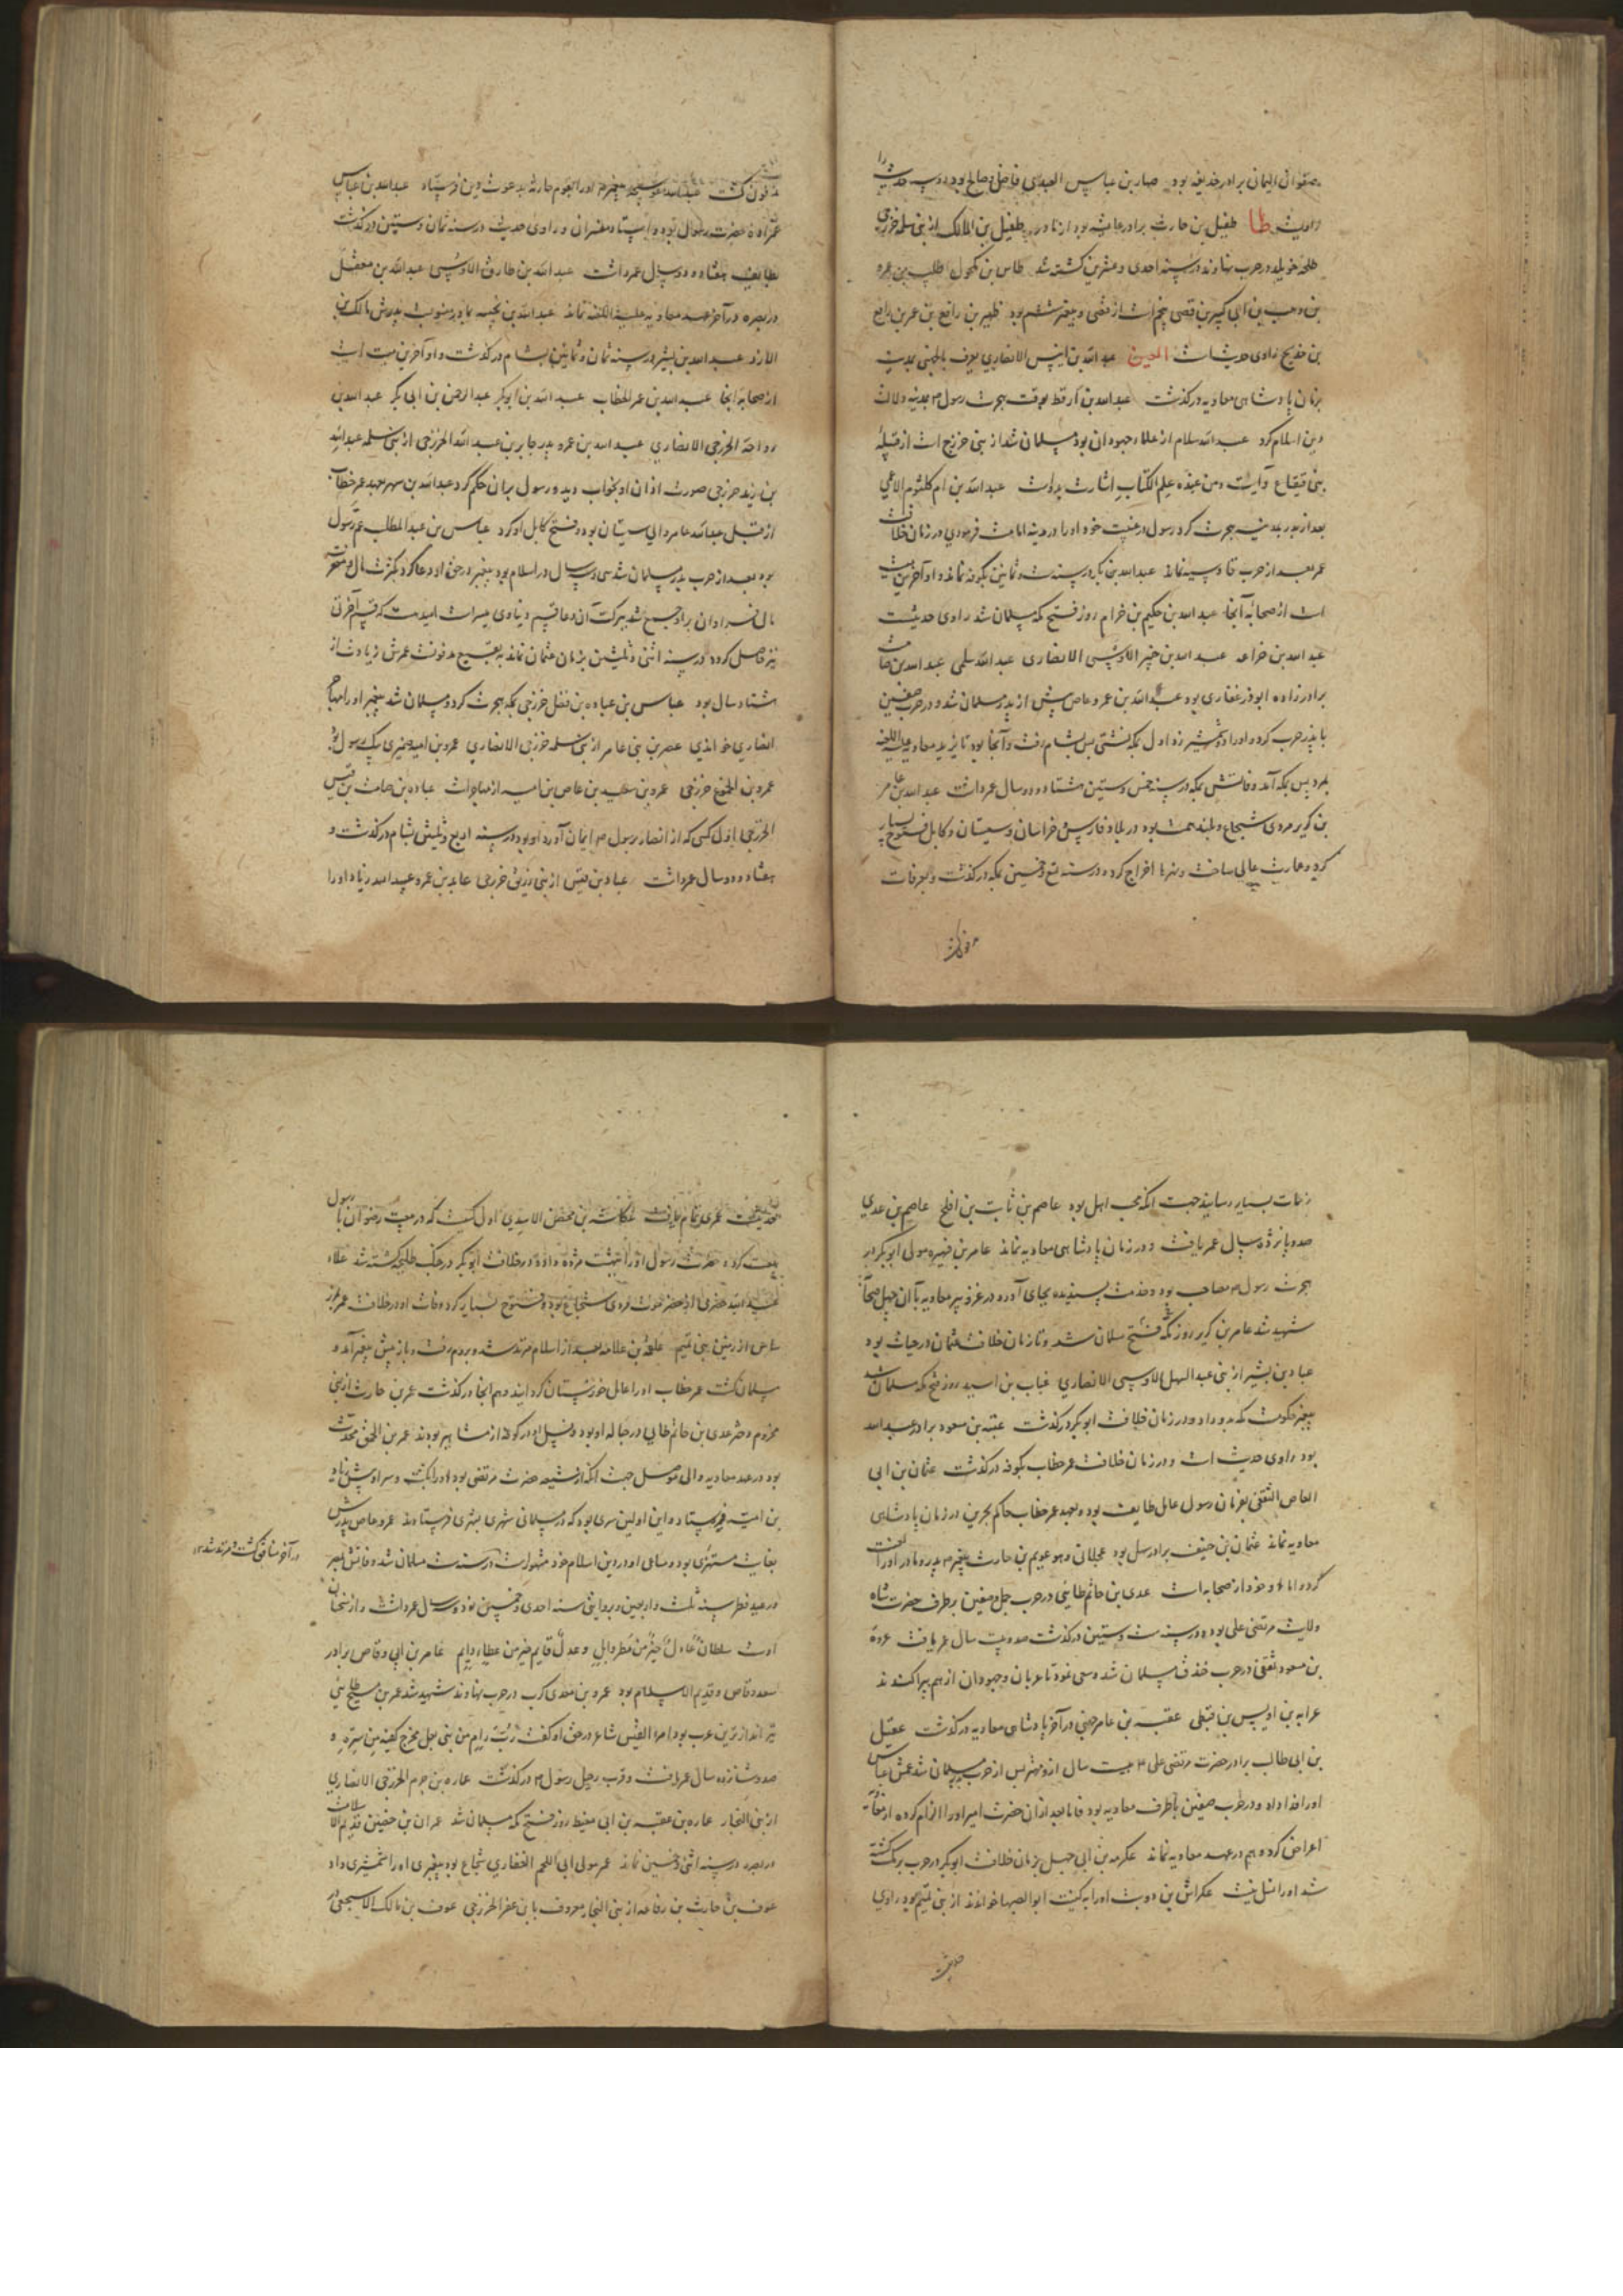 صفوان الیمان برادر حذیفه بود صحار بن عباس العبدی فاضل و صالح بود
راویست طا طفیل بن حارث برادر عایشه بود از مادر طفیل بن المالک از بنی سلمه خزرجی
طلحه خویلد در حرب نهاوند در سنه احدی و عشرین کشته شد طلیب بن
بن وهب بن ابی کبیر بن قصی پنجم است از قصی و پیغمبر ششم بود ظهیر بن رافع
بن خدیج راوی حدیث است العین عبدالله بن انیس الانصاری یعرف بالجهنی
بزمان پادشاهی معاویه درگذشت عبدالله بن ارقط بوقت هجرت رسول دلالت
دین اسلام کرد عبدالله سلام از علماء جهودان بود مسلمان شد از بنی خزرج است از قبیله
بنی قینقاع و آیت و من عنده علم الکتاب اشارت بدوست عبدالله بن ام کلثوم الاعمی
بعد از بدر بمدینه هجرت کرد رسول در غیبت خود او را در مدینه امامت فرمودی در زمان خلافت
عمر بعد از حرب قادسیه نماند عبدالله بن در سنه ست و ثمانین بکوفه نماند و او آخرین
است از صحابه آنجا عبدالله بن حکیم بن حزام روز فتح مکه مسلمان شد راوی حدیثست
عبدالله بن خزاعه عبدالله بن الاوسی الانصاری عبدالله سلمی عبدالله بن صامت
برادرزاده ابوذر غفاری بود عبدالله بن عمرو عاص پیش از پدر مسلمان شد و در حرب صفین
با پدر حرب کرد و او را دو شمشیر زد اول بمکه نشستی پس بشام رفت و آنجا بود تا یزید معاویه علیه اللعنه
بمرد پس بمکه آمد وفاتش بمکه در سنه خمس و ستین هشتاد و دو سال عمر داشت عبدالله بن عامر
بن کریز مردی شجاع و بلند همت بود در بلاد فارس و خراسان و سیستان و کابل فتوح بسیار
کرد و عمارت عالی ساخت و نهرها اخراج کرده در سنه تسع و خمسین بمکه درگذشت و بعرفات
مدفون گشت
مدفون گشت پیغمبر او را بقوم حارثه بدعوت دین فرستاد عبدالله بن عباس
عمزاده حضرت رسول بود و استاد مفسران و راوی حدیث در سنه ثمان و ستین درگذشت
بطایف هفتاد و دو سال عمر داشت عبدالله بن طارق الاوسی عبدالله بن مغفل
در بصره در آخر عهد معاویه علیه اللعنه نماند عبدالله بن بحینه بمادر منسوب پدرش مالک بن
الازد عبدالله بن بشر در سنه ثمان و ثمانین بشام درگذشت و او آخرین میت است
از صحابه آنجا عبدالله بن عمر الخطاب عبدالله بن ابوبکر عبدالرحمن بن ابی بکر عبدالله بن
رواحة الخزرجی الانصاری عبدالله بن عمرو پدر جابر بن عبدالله الخزرجی از بنی سلمه عبدالله
بن زید خزرجی صورت اذان او بخواب دید و رسول بدان حکم کرد عبدالله بن سهر بعهد عمر خطاب
از قبل عبدالله عامر والی سیستان بود و فتح کابل او کرد عباس بن عبدالمطلب عم رسول
بود بعد از حرب بدر مسلمان شد سی و سه سال در اسلام بود پیغمبر در حق او دعا کرد بکثرت مال و مغفرت
مال فراوان برو جمع شد ببرکت آن دعا قسم دنیاوی میسر است امیدست که قسم آخرتی
نیز حاصل گردد در سنه اثنی و ثلثین بزمان عثمان نماند به بقیع مدفونست عمرش زیادت از
هشتاد سال بود عباس بن عباده بن فضل خزرجی بمکه هجرت کرد و مسلمان شد پیغمبر او را مهاجر
انصاری خواندی عمر بن بنی عامر از بنی سلمه خزرجی الانصاری عمرو بن امیه ضمری پیک رسول بود
عمرو بن الجموح خزرجی عمرو بن سعید بن عاص بن امیه از مهاجرانست عباده بن صامت بن قیس
الخزرجی اول کسی که از انصار برسول ایمان آورد او بود در سنه اربع و ثلثین بشام درگذشت و
هفتاد و دو سال عمر داشت عباد بن قیس از بنی زریق خزرجی عاید بن عمرو عبیدالله زیاد او را
زحمات بسیار رسانید جهت آنکه محب اهل بود عاصم بن ثابت بن افلح عاصم بن عدی
صد و پانزده سال عمر یافت و در زمان پادشاهی معاویه نماند عامر بن فهیره مولی ابوبکر در
هجرت رسول مصاحب بود و خدمت پسندیده بجای آورد در غزو بیر معاویه با آن چهل صحابه
شهید شد عامر بن کریز روز فتح مکه مسلمان شد و تا زمان خلافت عثمان در حیات بود
عباد بن بشیر از بنی عبدالاشهل الاوسی الانصاری عتاب بن اسید روز فتح مکه مسلمان شد
پیغمبر حکومت مکه بدو داد و در زمان خلافت ابوبکر درگذشت عتبه بن مسعود برادر عبدالله
بود راوی حدیث است و در زمان خلافت عمر خطاب بکوفه درگذشت عثمان بن ابی
العاص الثقفی بفرمان رسول عامل طایف بود و بعهد عمر خطاب حاکم بحرین در زمان پادشاهی
معاویه نماند عثمان بن حنیف برادر سهل بود عجلانی و هو عویمر بن حارث پیغمبر پدر و مادر او را لعنت
کرد اما او خود از صحابه است عدی بن حاتم طایی در حرب جمل و صفین بر طرف حضرت شاه
ولایت مرتضی علی بود در سنه ست و ستین درگذشت صد و بیست سال عمر یافت عروة
بن مسعود ثقفی در حرب خندق مسلمان شد و سعی نمود تا عربان و جهودان از هم پراکندند
عرابه بن اوس بن قیظی عقبه بن عامر جهنی در آخر پادشاهی معاویه درگذشت عقیل
بن ابی طالب برادر حضرت مرتضی علی بیست سال ازو مهتر پس از حرب بدر مسلمان شد عمش عباس
او را فدا داد و در حرب صفین با طرف معاویه بود فاما بعد از آن حضرت امیر او را الزام کرده از معاویه
اعراض کرد و هم در عهد معاویه نماند عکرمه بن ابی جهل بزمان خلافت ابوبکر در حرب یرموک کشته
شد او را نسل نیست عکراش بن ذویب او را به کنیت ابوالصهبا خواندند از بنی تمیم بود راوی
حدیثست
حدیثست عمری تمام یافت عکاشه بن محصن الاسدی اول کسیست که در بیعت رضوان با رسول
بیعت کرد حضرت رسول او را ببهشت مژده داد و در خلافت ابوبکر در جنگ طلیحه کشته شد علاء
عبدالله حضرمی از حضرموت مردی شجاع بود و فتوح بسیار کرد وفات او در خلافت عمر
علقمه بن علاثه بعد از اسلام مرتد شد و بروم رفت و باز پیش پیغمبر آمد و
مسلمان گشت عمر خطاب او را عامل خوزستان گردانید و هم آنجا درگذشت عمر بن حارث از بنی
مخزوم دختر عدی بن حاتم طایی در حباله او بود و نسل او در کوفه از مشاهیر بودند عمر بن الحمق محدث
بود در عهد معاویه والی موصل جهت آنکه از شیعه حضرت مرتضی بود او را بکشت و سر او پیش زیاد
بن امیه فرستاد و این اولین سری بود که در مسلمانی شهری بشهری فرستادند عمرو عاص پدرش
بغایت مستهزی بود و مساعی او در دین اسلام خود مشهورست در سنه ست مسلمان شد وفاتش بمصر
در عید فطر سنه ثلث و اربعین و بروایتی سنه احدی و خمسین نود و سه سال عمر داشت و از سخنان
اوست سلطان عادل خیر من مطر وابل و عدل قایم خیر من عطاء دایم عامر بن ابی وقاص برادر
سعد وقاص و قدیم الاسلام بود عمرو بن معدی کرب در حرب نهاوند شهید شد عمر بن مسبح طایی
تیراندازترین عرب بود امرء القیس شاعر در حق او گفت رب رام من بنی ثعل مخرج کفیه من ستره و
صد و شانزده سال عمر یافت و قرب رحیل رسول درگذشت عماره بن حزم الخزرجی الانصاری
از بنی النجار عماره بن عقبه بن ابی معیط روز فتح مکه مسلمان شد عمران بن حصین قدیم الاسلامست
در بصره در سنه اثنی و خمسین نماند عمر مولی ابی اللحم الغفاری شجاع بود پیغمبر او را شمشیری داد
عوف بن حارث بن رفاعه از بنی النجار معروف بابن عفراء الخزرجی عوف بن مالک الاشجعی در
در آخر منافق گشت و مرتد شد